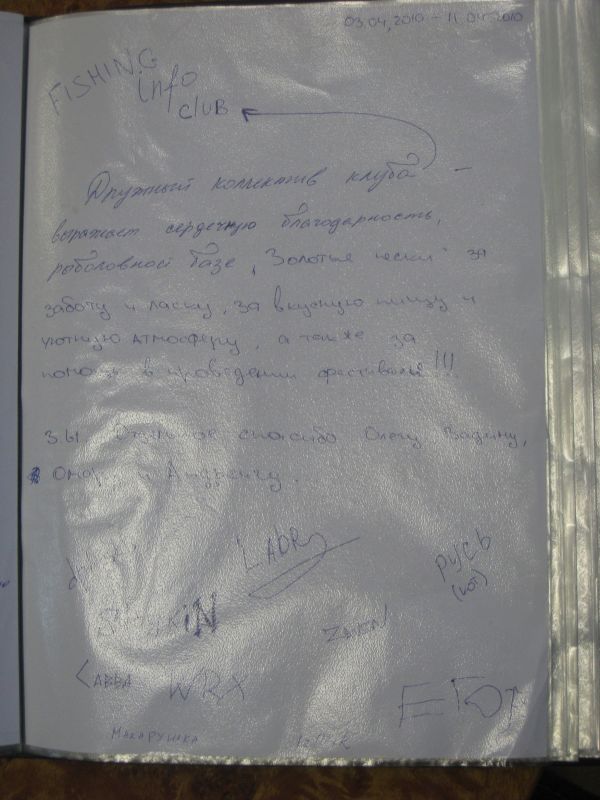 03.04.2010 - 11.04.2010
FISHING
info
club
Дружный коллектив клуба -
выражает сердечную благодарность,
рыболовной базе "Золотые пески" за
заботу и ласку, за вкусную пищу и
уютную атмосферу, а также за
помощь в проведении фестиваля!!!
З.Ы. Отдельное спасибо Олегу, Вадиму,
и Андреичу.
LADRy
Русь
(кот)
САВВА WRX
МАКАРУШКА